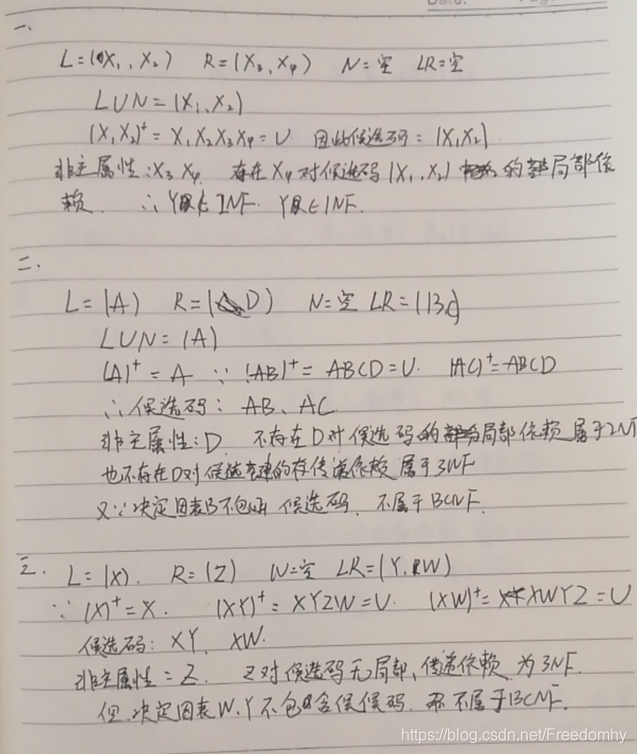 Date. Page
一、
L=(X₁, X₂) R=(X₃, X₄) N=空 LR=空
LUN=(X₁, X₂)
(X₁X₂)⁺ = X₁X₂X₃X₄=U 因此候选码: (X₁X₂)
非主属性: X₃ X₄. 存在 X₄ 对候选码 (X₁, X₂) 的局部依
赖. ∴ R∈1NF.
二.
L=(A) R=(D) N=空 LR=(B,C)
LUN=(A)
(A)⁺ = A ∵ (AB)⁺ = ABCD=U. (AC)⁺=ABCD
∴候选码: AB、AC
非主属性: D 不存在D对候选码的局部依赖 属于2NF
也不存在D对候选的传递依赖 属于3NF
又∵决定因素B不包含 候选码. 不属于BCNF.
三.
L=(X). R=(Z) N=空 LR=(Y, W)
∵ (X)⁺=X. (XY)⁺= XYZW=U. (XW)⁺= XWYZ=U
候选码: XY, XW.
非主属性=Z. Z对候选码无局部、传递依赖, 为3NF.
但, 决定因素W、Y不包含候选码. 不属于BCNF.
https://blog.csdn.net/Freedomhy